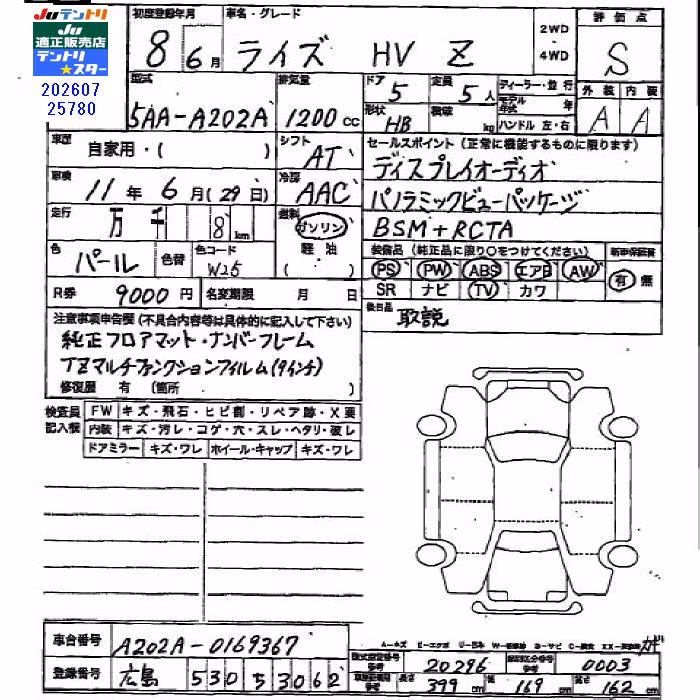 Juテントリ
JU
適正販売店
テントリ
★スター
202607
25780
初度登録年月
8年6月
車名・グレード
ライズ HV Z
2WD
4WD
評価点
S
外装 内装
A A
型式
5AA-A202A
排気量
1200cc
ドア
5
定員
5人
形状
HB
積載
kg
ディーラー・並行
モデル年式 年
ハンドル 左・右
車歴
自家用・( )
シフト
AT
セールスポイント (正常に機能するものに限ります)
ディスプレイオーディオ
パノラミックビューパッケージ
BSM+RCTA
車検
11年6月(29日)
冷房
AAC
走行
万 千 8 km
燃料
ガソリン
軽油
( )
色
パール
色替
色コード
W25
装備品 (純正品に限り○をつけてください)
PS PW ABS エアB AW
SR ナビ TV カワ
新車保証書
有 無
R券 9000円
名変期限 月 日
後日品
取説
注意事項申告欄 (不具合内容等は具体的に記入して下さい)
純正フロアマット・ナンバーフレーム
TZマルチファンクションフィルム(9インチ)
修復歴 有 (箇所 )
検査員
記入欄
FW キズ・飛石・ヒビ割・リペア跡・X要
内装 キズ・汚レ・コゲ・穴・スレ・ヘタリ・破レ
ドアミラー キズ・ワレ ホイール・キャップ キズ・ワレ
車台番号 A202A-0169367
登録番号 広島 530 ち 3062
20296
0003
長さ 399cm 幅 169cm 高さ 162cm